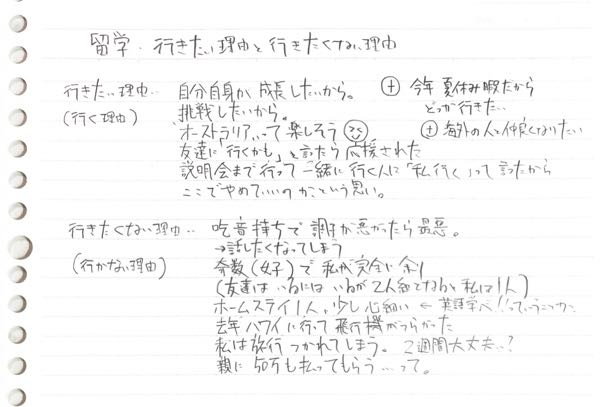 留学・行きたい理由と行きたくない理由
行きたい理由… 自分自身が成長したいから。 ⊕ 今年夏休み暇だから
(行く理由) 挑戦したいから。 どっか行きたい…
オーストラリアって楽しそう ⊕ 海外の人と仲良くなりたい
友達に「行くかも」と言ったら応援された
説明会まで行って一緒に行く人に「私行く」って言ったから
ここでやめていいのかという思い。
行きたくない理由… 吃音持ちで調子が悪かったら最悪。
(行かない理由) →話したくなってしまう
奇数(女子)で私が完全に余り
(友達はいるにはいるが2人組で私は1人)
ホームステイ1人、少し心細い ← 英語学べ!!っていう
去年ハワイに行って飛行機がつらかった
私は旅行つかれてしまう。2週間大丈夫…?
親に50万も払ってもらう…って。